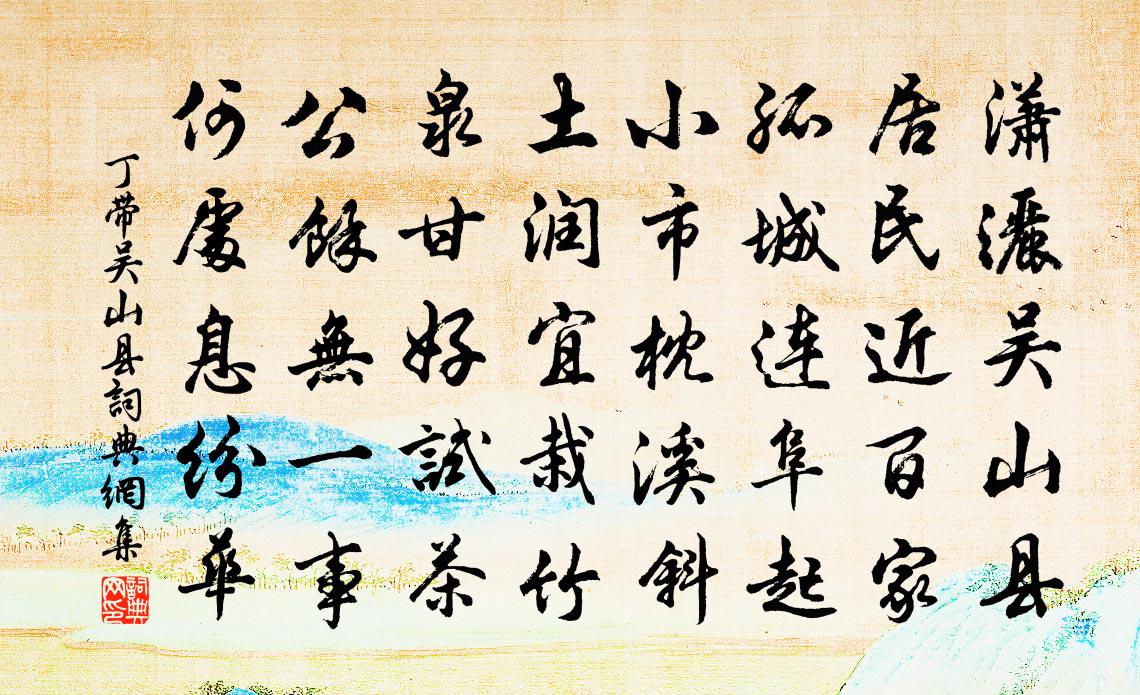 潇灑吴山县
居民近百家
孤城连阜起
小市枕溪斜
土润宜栽竹
泉甘好試茶
公餘無一事
何處息纷华
丁带吴山县詞典網集
詞典网印